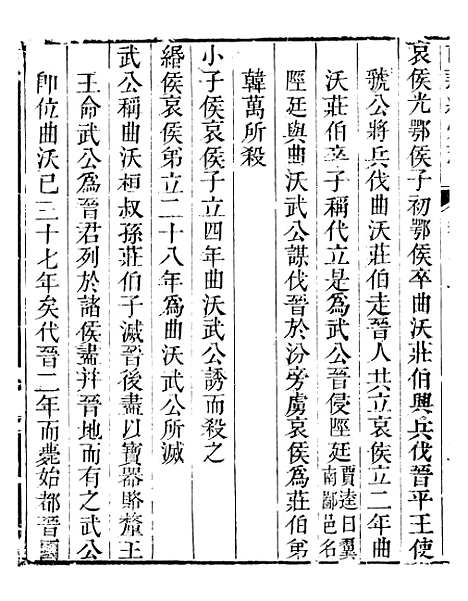 哀侯光鄂侯子初鄂侯卒曲沃莊伯興兵伐晉平王使
虢公將兵伐曲沃莊伯走晉人共立哀侯立二年曲
沃莊伯卒子稱代立是為武公晉侵陘廷賈逵曰翼南鄙邑名
陘廷與曲沃武公謀伐晉於汾旁虜哀侯為莊伯弟
韓萬所殺
小子侯哀侯子立四年曲沃武公誘而殺之
緡侯哀侯弟立二十八年為曲沃武公所滅
武公稱曲沃桓叔孫莊伯子滅晉後盡以寶器賂釐王
王命武公為晉君列於諸侯盡并晉地而有之武公
即位曲沃已三十七年矣代晉二年而薨始都晉國